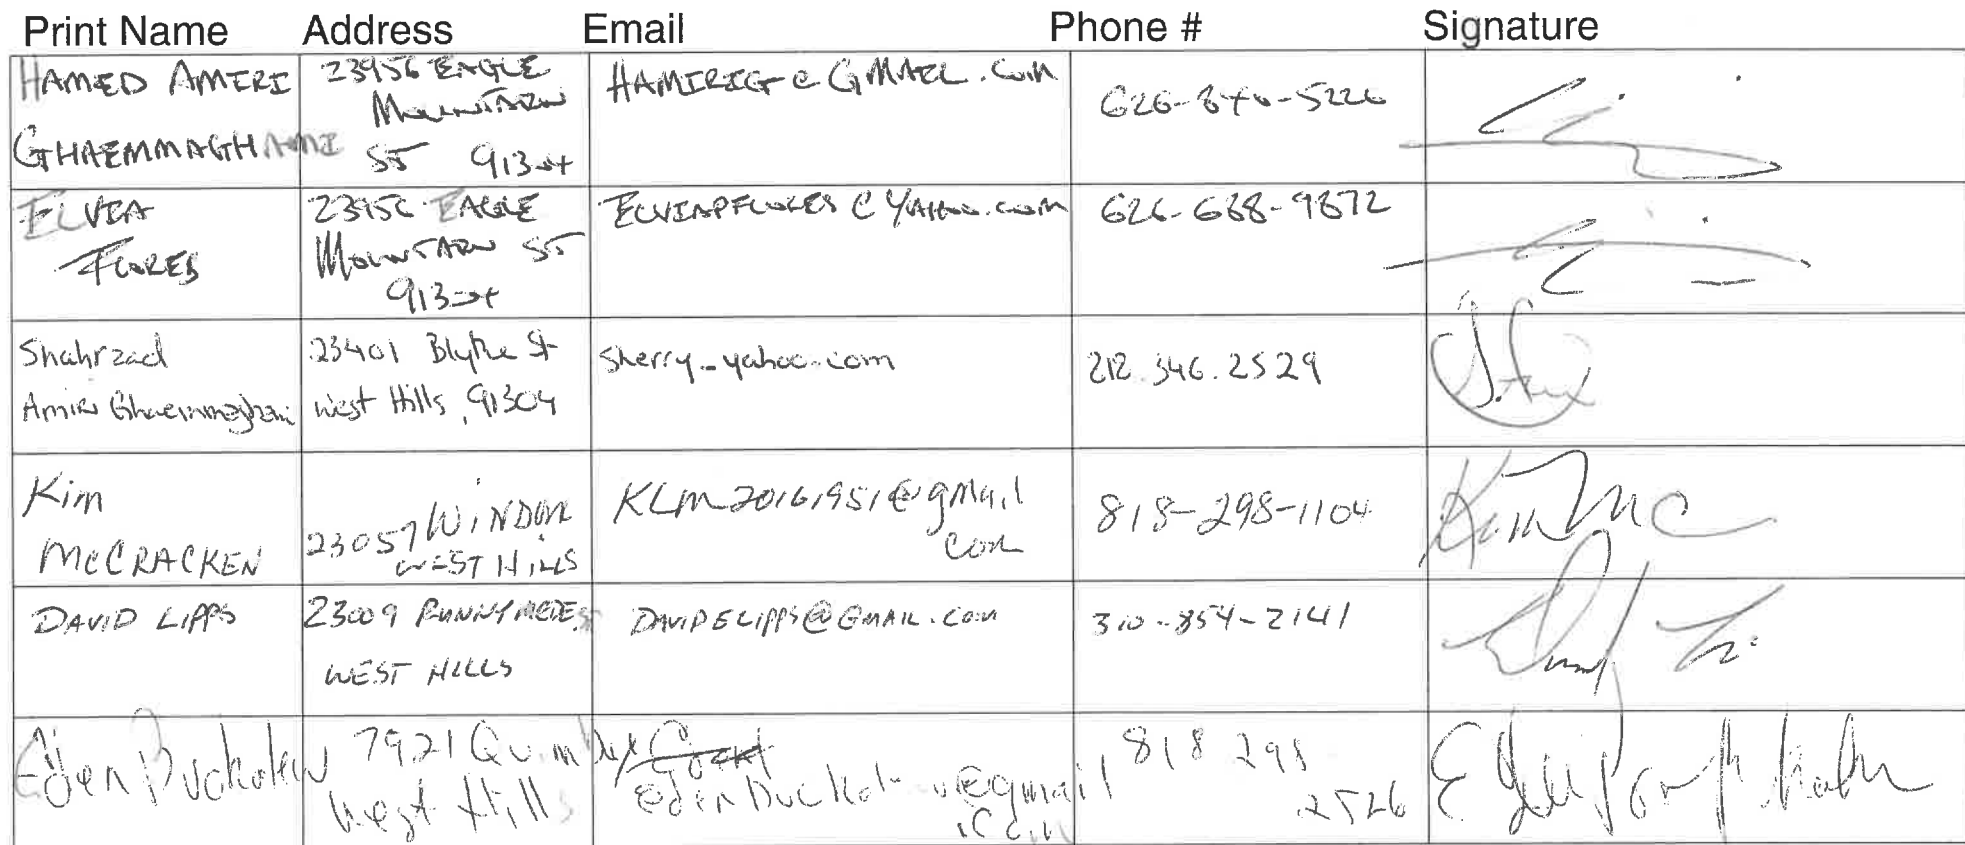 Print Name Address Email Phone # Signature
HAMED AMIRI
GHAEMMAGHAMI
23956 EAGLE
MOUNTAIN
ST 91304
HAMIRIG@GMAIL.COM
626-840-5226
ELVIA
FLORES
23956 EAGLE
MOUNTAIN ST
91304
ELVIAPFLORES@YAHOO.COM
626-688-9872
Shahrzad
Amiri Ghaemmaghami
23401 Blythe St
West Hills, 91304
Sherry_yahoo.com
212.346.2529
Kim
McCRACKEN
23057 WINDOM
WEST HILLS
KLM20161951@gmail
com
818-298-1104
DAVID LIPPS
23009 RUNNYMEDE ST
WEST HILLS
DAVIDELIPPS@GMAIL.COM
310-854-2141
Eden
7921 Quimby Court
West Hills
@gmail
.com
818 298
2526